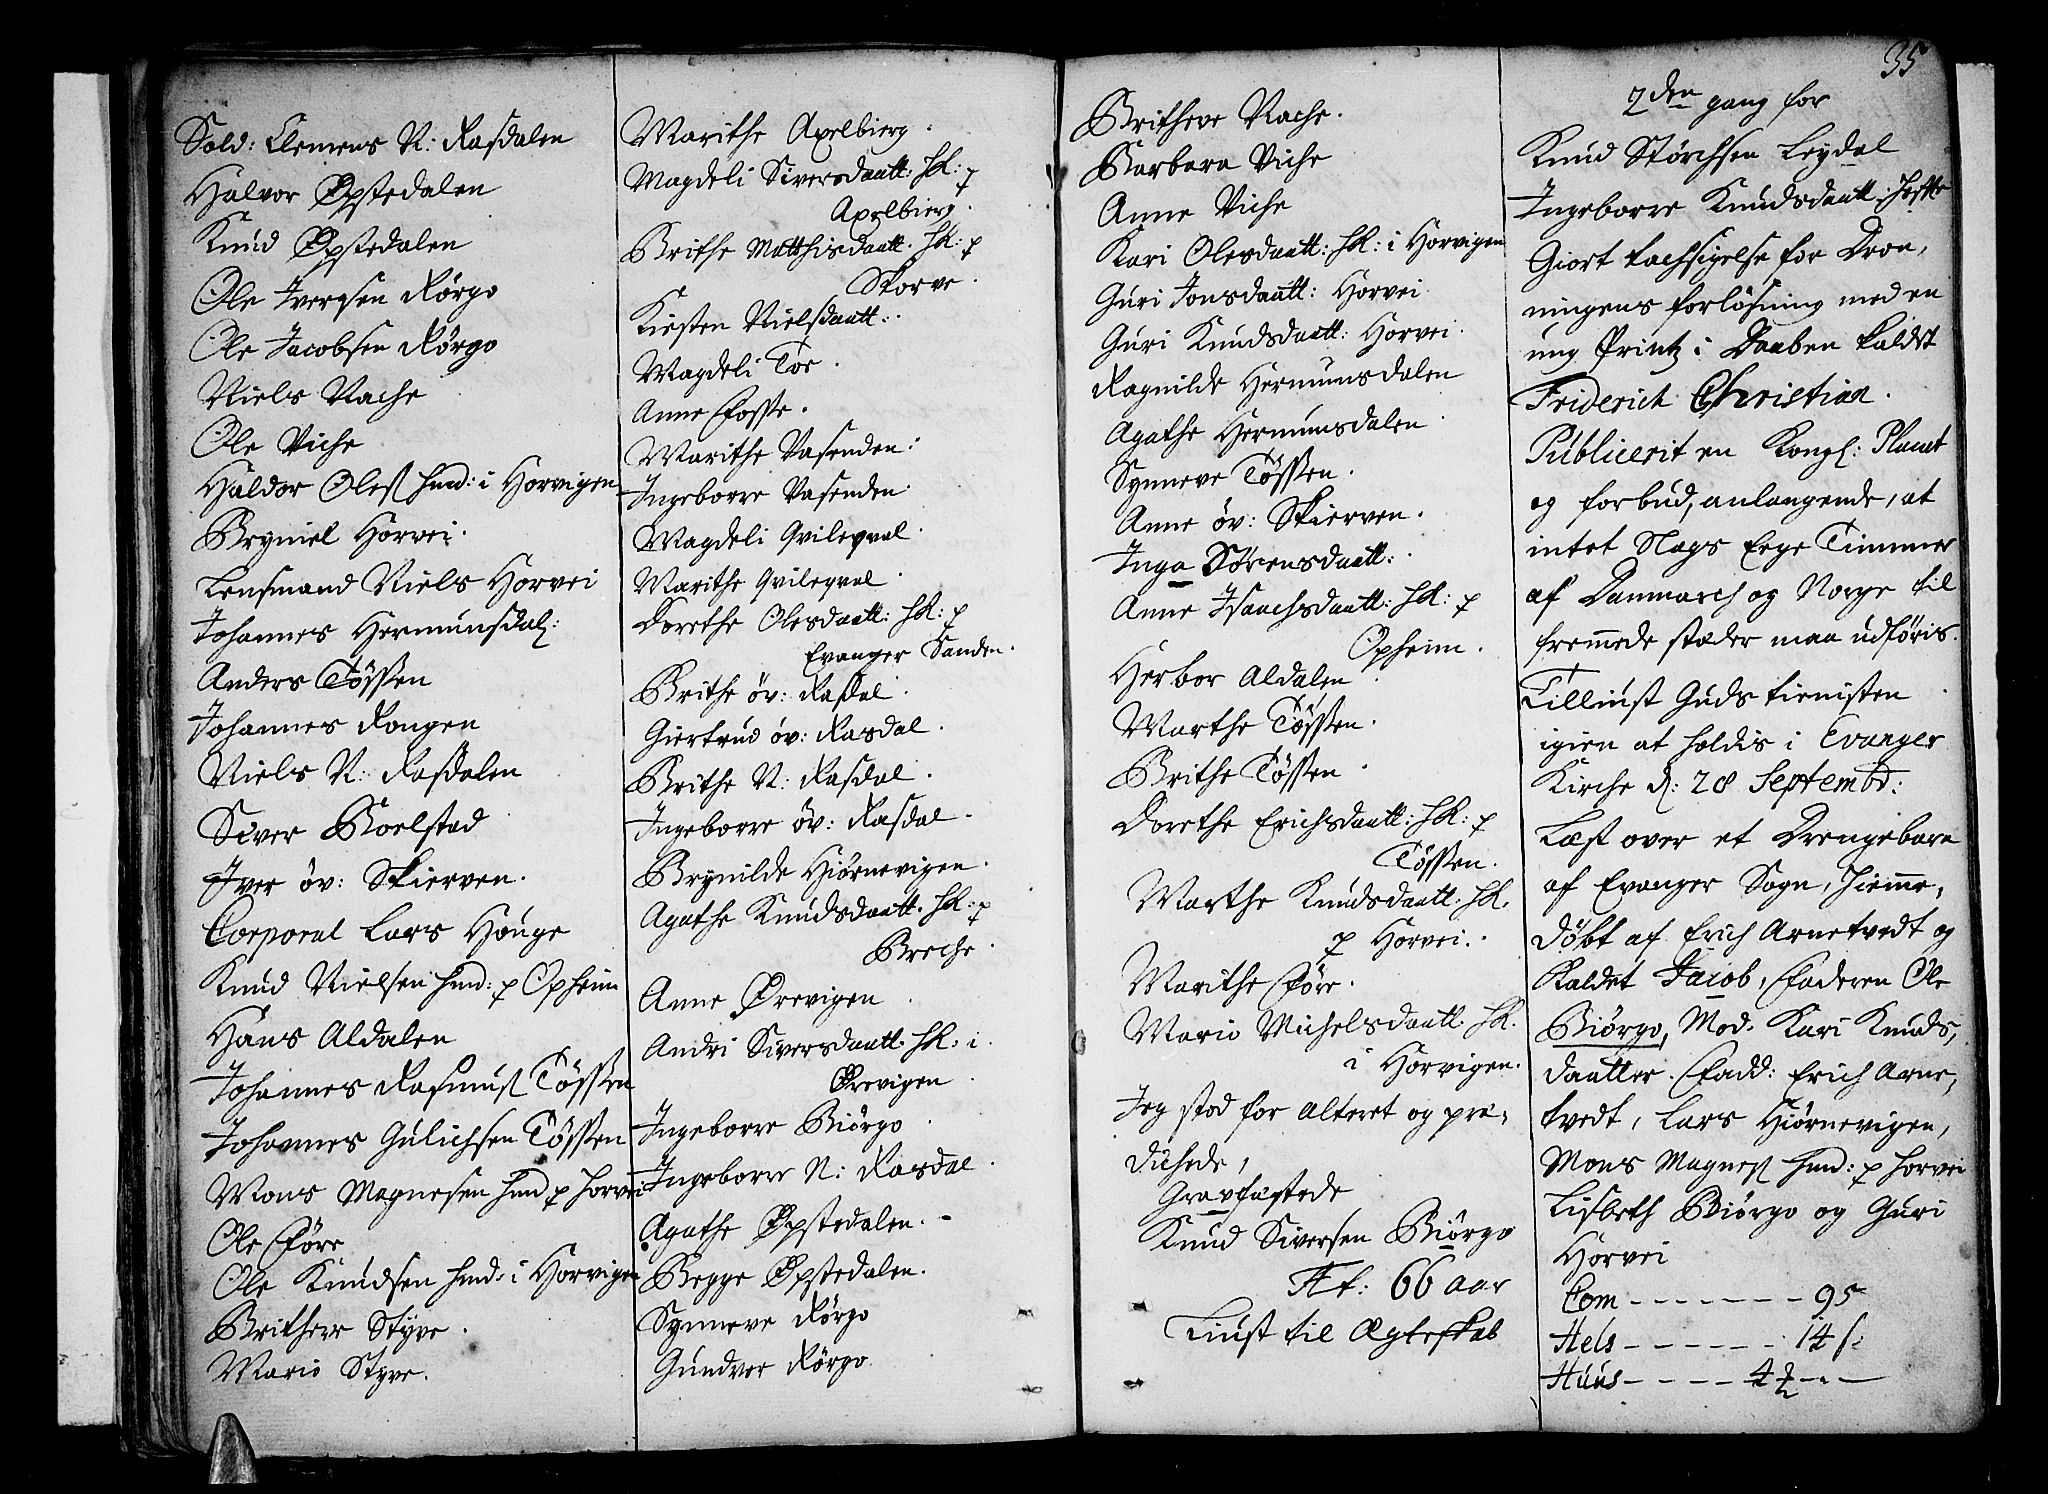 Sold: Clemens N: Rasdalen
Halvor Øpstedalen
Knud Øpstedalen
Ole Iversen Rörgo
Ole Jacobsen Rörgo
Niels Rache
Ole Viche
Haldor Oles hmd: i Horvigen
Bryniel Horvei.
Lensmand Niels Horvei
Johannes Hermunsdal:
Anders Tössen
Johannes Rongen
Niels N: Rasdalen
Siver Boelstad
Iver öv: Skierven.
Corporal Lars Houge
Knud Nielsen hmd: p Opheim
Hans Aldalen
Johannes Rasmus Tössen
Johannes Gulichsen Tössen
Mons Magnesen hmd p Horvei
Ole Före
Ole Knudsen hmd: i Horvigen
Britherr Styve.
Mario Styve.
Marithe Axelbierg.
Magdeli Siversdaatt: hk: p
Axelbierg.
Brithe Matthisdaatt. hk: p
Skorve.
Kirsten Nielsdaatt:.
Magdeli Toe.
Anne Fosse.
Marithe Vasenden.
Ingeborre Vasenden.
Magdeli Qvileqval.
Marithe Qvileqval.
Dorethe Olesdaatt: hk: p
Evanger Sanden.
Brithe öv: Rasdal.
Giertrud öv: Rasdal.
Brithe N: Rasdal.
Ingeborre öv: Rasdal.
Brynilde Hiörnevigen.
Agathe Knudsdaatt. hk: p
Breche.
Anne Ørevigen.
Andri Siversdaatt. hk: i
Ørevigen.
Ingeborre Biörgo.
Ingeborre N: Rasdal.
Agathe Øpstedalen.
Begge Øpstedalen.
Synneve Rörgo
Gundver Rörgo.
Britheve Rache.
Barbara Viche
Anne Viche
Kari Olesdaatt: hk: i Horvigen
Guri Jonsdaatt: Horvei
Guri Knudsdaatt: Horvei.
Ragnilde Hermunsdalen
Agathe Hermunsdalen.
Synneve Tössen.
Anne öv: Skierven.
Inga Sörensdaatt:.
Anne Isaachsdaatt: hk: p
Opheim.
Herbor Aldalen.
Marthe Tössen.
Brithe Tössen.
Dorethe Erichsdaatt: hk: p
Tössen.
Marthe Knudsdaatt. hk.
p Horvei.
Marithe Före.
Mario Michelsdaatt. hk.
i Horvigen.
Jeg stod for Alteret og præ-
dichede,
Gravfæstede
Knud Siversen Biörgo
Æt: 66 aar
Liust til Ægteskab
35
2den gang for
Knud Störchsen Leydal
Ingeborre Knudsdaatt: Joste
Giort tachsigelse for Dron,
ningens forlösning med en
ung Printz i Daaben kaldet
Friderich Christian.
Publicerit en Kongl: Placat
og forbud, anlangende, at
intet Slags Eege Timmer
af Danmarch og Norge til
fremede stæder maa udföris.
Tilliust Guds tienisten
igien at holdis i Evanger
Kirche d: 28 Septembr:
Læst over et Drengebarn
af Evanger Sogn, hieme,
döbt af Erich Arnetvedt og
kaldet Jacob, Faderen Ole
Biörgo, Mod. Kari Knuds,
daatter. Fadd: Erich Arne,
tvedt, Lars Hiörnevigen,
Mons Magnes hmd: p Horvei
Lisbeth Biörgo og Guri
Horvei
Com - - - - - - - 95
Hels - - - - - - 14 s:
Huus - - - - 4